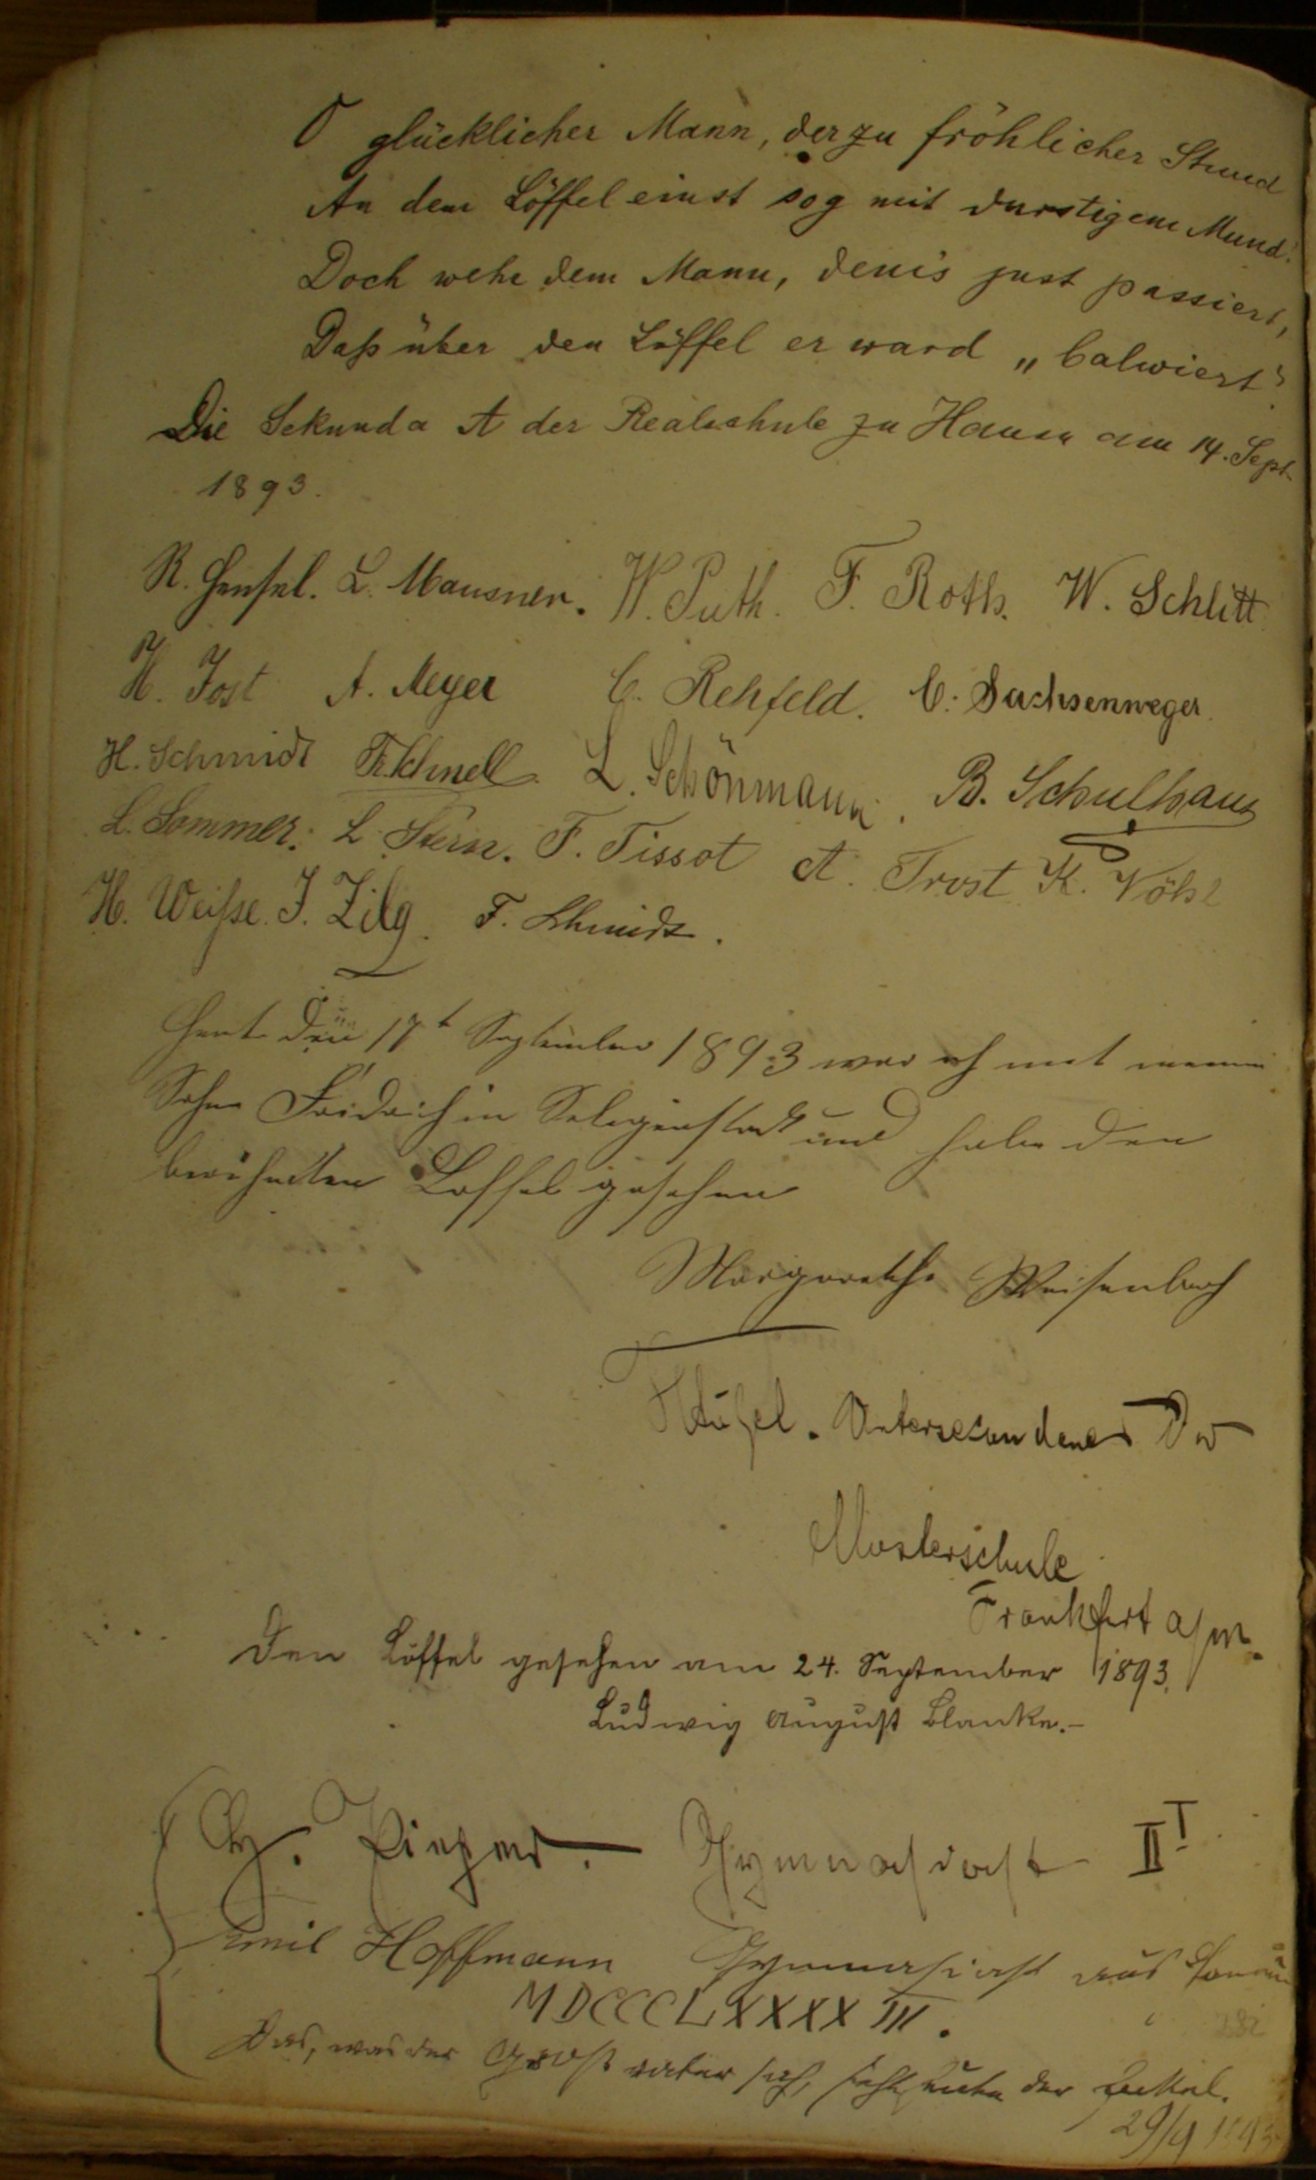 O glücklicher Mann, der zu fröhlicher Stund
An dem Löffel einst sog mit durstigem Mund!
Doch wehe dem Mann, dem's just passiert,
Daß über den Löffel er ward „balwiert".
Die Sekunda A der Realschule zu Hanau am 14. Sept.
1893.
R. Hensel. L. Mausner. W. Puth. F. Roth. W. Schlitt
H. Jost A. Meyer C. Rehfeld. C. Sachsenweger.
H. Schmidt Fr. Schnell L. Schönmann. B. Schulhaus
L. Sommer. L. Stern. F. Tissot A. Trost K. Vöhl
H. Weiße. J. Zilg. F. Schmidt.
Heut den 17t September 1893 war ich mit meinem
Sohne Fridrich in Seligenstadt und habe den
berühmten Löffel gesehen
Margarethe Weisenbach
Untersecundaner der
Musterschule
Frankfurt a/M.
Den Löffel gesehen am 24. September 1893.
Ludwig August Blanke.-
Gymnasiast II
Emil Hoffmann Gymnasiast aus Hanau
MDCCCLXXXXIII.
Das, was der Großvater sah, sieht heute der Enkel.
29/9 1893